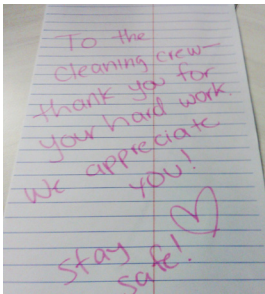 To the
cleaning crew—
thank you for
your hard work.
We appreciate
you!
stay
safe!